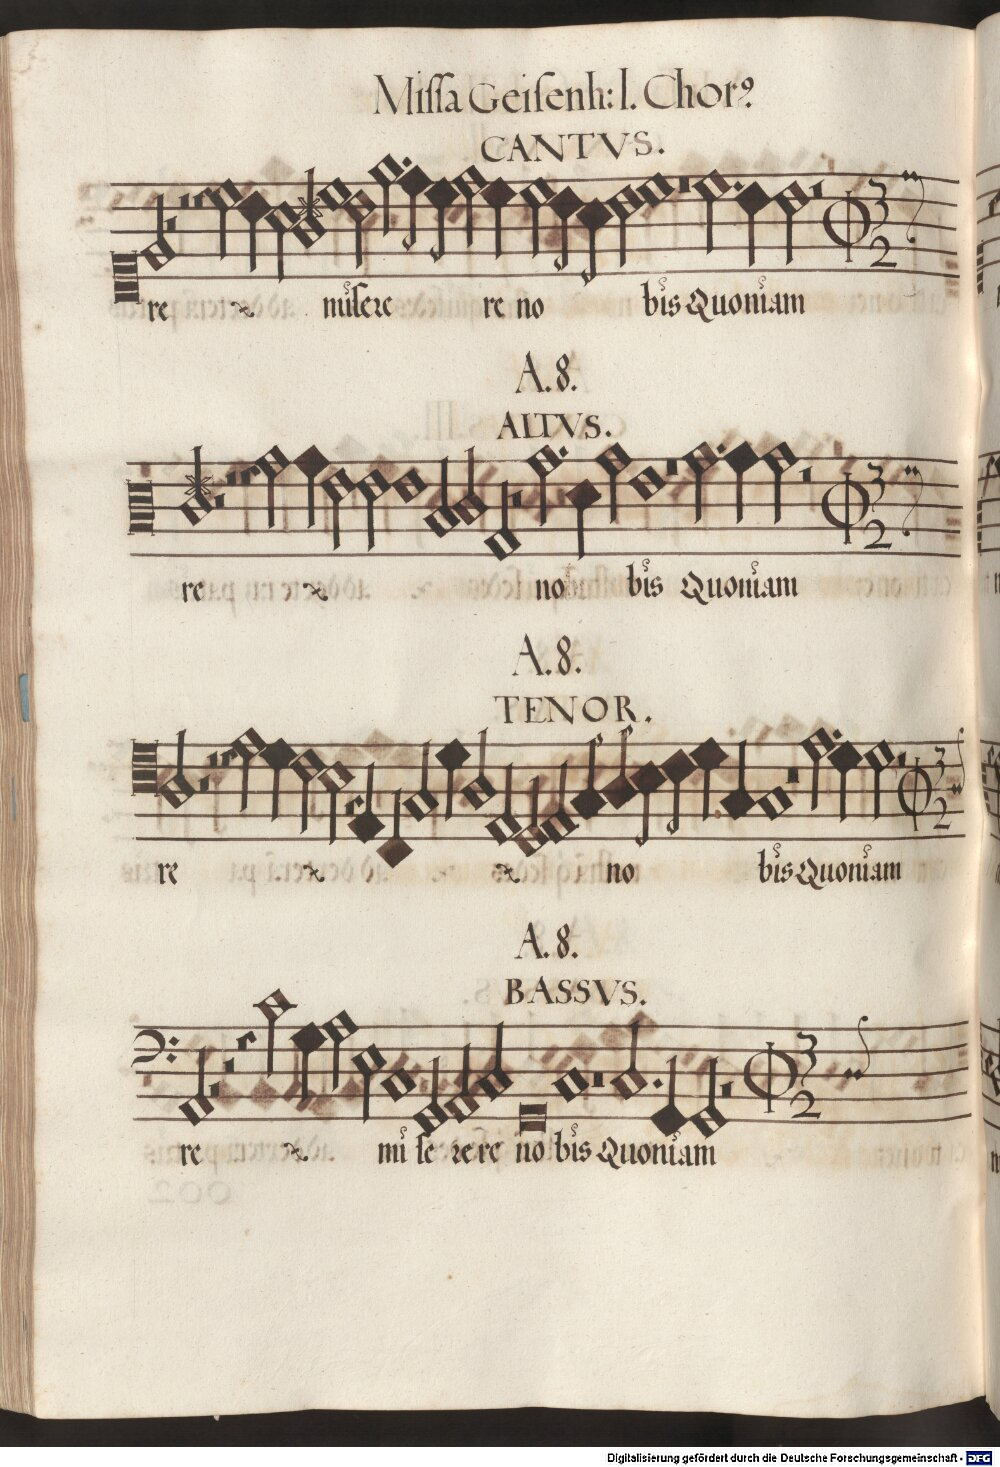 Missa Geisenh: I. Chorꝰ
CANTVS.
re miserere re no bis Quoniam
A. 8.
ALTVS.
re no bis Quoniam
A. 8.
TENOR.
re no bis Quoniam
A. 8.
BASSVS.
re mi se rere no bis Quoniam
Digitalisierung gefördert durch die Deutsche Forschungsgemeinschaft - DFG